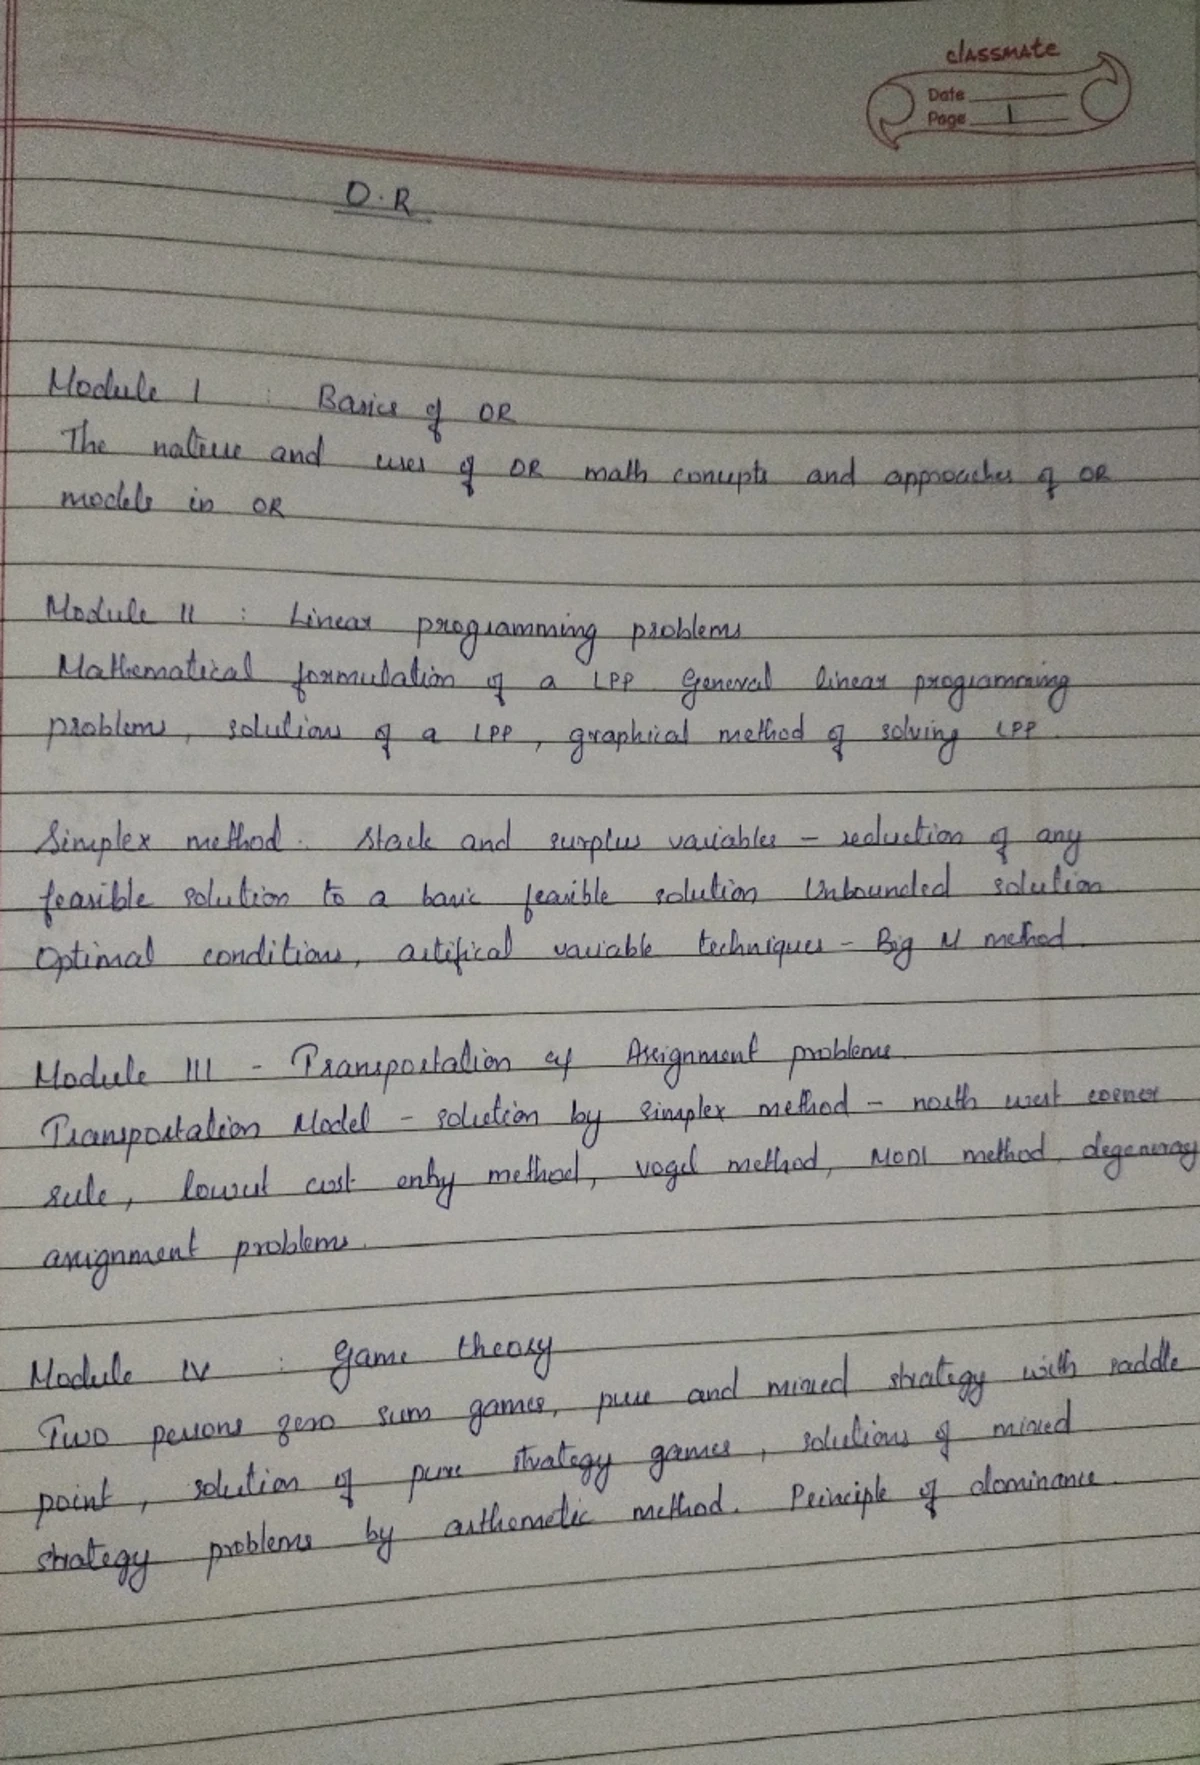 classmate
Date
Page 1
O.R
Module I : Basics of OR
The nature and uses of OR math concepts and approaches of OR
models in OR
Module II : Linear programming problems
Mathematical formulation of a LPP General linear programming
problems, solutions of a LPP, graphical method of solving LPP.
Simplex method. Slack and surplus variables - reduction of any
feasible solution to a basic feasible solution Unbounded solution
Optimal conditions, artifical variable techniques - Big M method.
Module III - Transportation Assignment problems.
Transportation Model - solution by simplex method - north west corner
rule, lowest cost entry method, vogel method, MODI method, degeneracy
assignment problems.
Module IV : Game theory
Two persons zero sum games, pure and mixed strategy with saddle
point, solution of pure strategy games, solutions of mixed
strategy problems by arthemetic method. Principle of dominance.